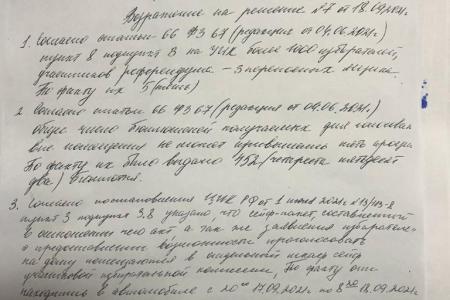 Возражение на решение №7 от 18.09.2021г
1. Согласно статьи 66 ФЗ 67 (редакция от 04.06.2021г)
пункт 8 подпункт В на УИК более 1000 избирателей,
участников референдума – 3 переносных ящика.
По факту их 5 (пять)
2. Согласно статьи 66 ФЗ 67 (редакция от 04.06.2021г)
общее число бюллетеней получаемых для голосова
вне помещения не может превышать пять
По факту их было выдано 452 (четыреста пятьдесят
два) бюллетеня.
3. Согласно постановления ЦИК РФ от 1 июля 2021г №13/103-8
пункт 3 подпункт 3.8 указано, что сейф-пакет, составленный
в отношении него акт, а так же заявления избирателей
о предоставлении возможности проголосовать
на дому помещаются в сейф
участковой избирательной комиссии, По факту они
находились в автомобиле с 20⁰⁰ 17.09.2021г по 8³⁰ 18.09.2021